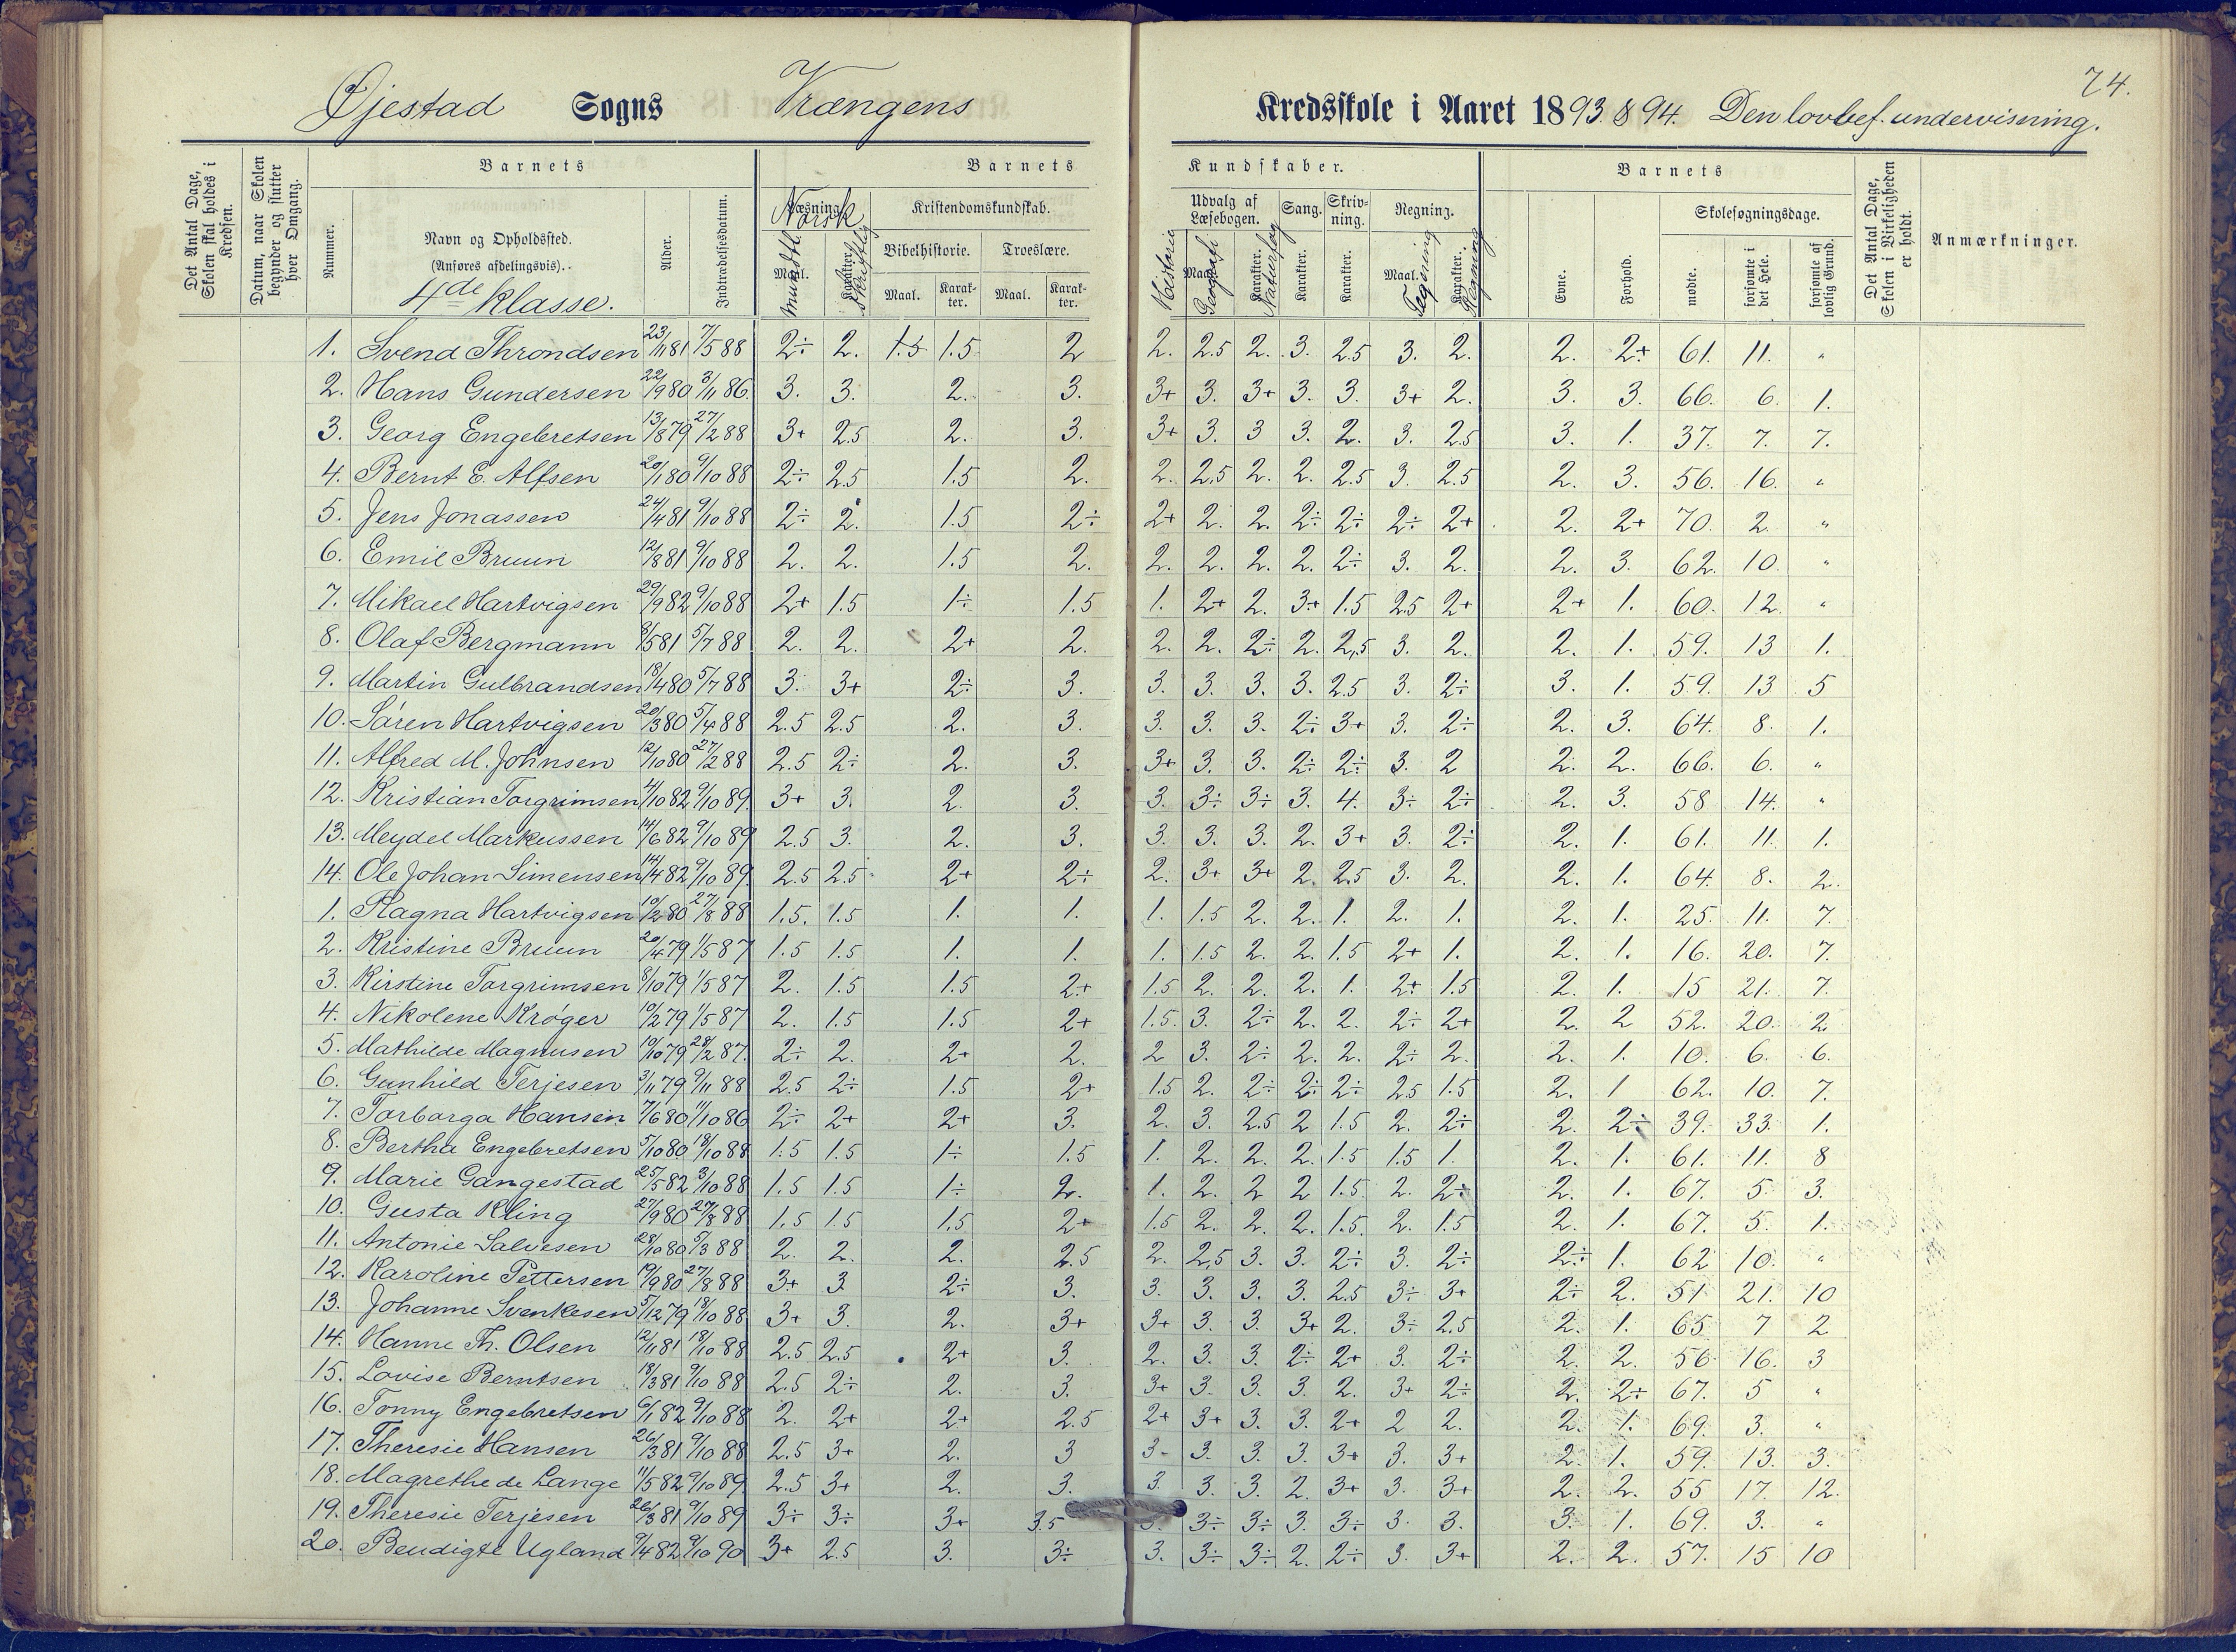 74.
Øjestad Sogns Vrængens Kredsskole i Aaret 1893 & 94. Den lovbef. undervisning.
Det Antal Dage, Skolen skal holdes i Kredsen.
Datum, naar Skolen begynder og slutter hver Omgang.
Barnets
Nummer.
Navn og Opholdssted.
(Anføres afdelingsvis).
4de Klasse.
Alder.
Indtrædelsesdatum.
Barnets Kundskaber.
Læsning. Norsk
Maal. Mundtl.
Karakter. Skriftlig
Kristendomskundskab.
Bibelhistorie. Troeslære.
Maal. Karakter. Maal. Karakter.
Udvalg af Læsebogen. Sang. Skrivning. Regning.
Historie Maal. Geografi Karakter. Naturfag Karakter. Karakter. Maal. Tegning Karakter. Regning
Barnets
Evne. Forhold.
Skolesøgningsdage.
mødte. forsømte i det Hele. forsømte af lovlig Grund.
Det Antal Dage, Skolen i Virkeligheden er holdt.
Anmærkninger.
1. Svend Throndsen 23/11 81 7/5 88 2÷ 2. 1.5 1.5 2 2. 2.5 2. 3. 2.5 3. 2. 2. 2+ 61. 11. "
2. Hans Gundersen 22/9 80 3/11 86. 3. 3. 2. 3. 3+ 3. 3+ 3. 3. 3+ 2. 3. 3. 66. 6. 1.
3. Georg Engebretsen 13/8 79 27/2 88 3+ 2.5 2. 3. 3+ 3. 3 3. 2. 3. 2.5 3. 1. 37. 7. 7.
4. Bernt E. Alfsen 20/1 80 9/10 88 2÷ 2.5 1.5 2. 2. 2.5 2. 2. 2.5 3. 2.5 2. 3. 56. 16. "
5. Jens Jonassen 24/4 81 9/10 88 2÷ 2. 1.5 2÷ 2+ 2. 2. 2÷ 2÷ 2÷ 2+ 2. 2+ 70. 2 "
6. Emil Bruun 12/8 81 9/10 88 2. 2. 1.5 2. 2. 2. 2. 2. 2÷ 3. 2. 2. 3. 62. 10. "
7. Mikael Hartvigsen 29/9 82 9/10 88 2+ 1.5 1÷ 1.5 1. 2+ 2. 3+ 1.5 2.5 2+ 2+ 1. 60. 12. "
8. Olaf Bergmann 8/5 81 5/7 88 2. 2. 2+ 2. 2. 2. 2÷ 2. 2,5 3. 2. 2. 1. 59. 13 1.
9. Martin Gulbrandsen 18/4 80 5/7 88 3. 3+ 2÷ 3. 3. 3. 3. 3. 2.5 3. 2÷ 3. 1. 59. 13 5
10. Søren Hartvigsen 20/3 80 5/4 88 2.5 2.5 2. 3. 3. 3. 3. 2÷ 3+ 3. 2÷ 2. 3. 64. 8. 1.
11. Alfred M. Johnsen 12/10 80 27/2 88 2.5 2÷ 2. 3. 3+ 3. 3. 2÷ 2÷ 3. 2 2. 2. 66. 6. "
12. Kristian Torgrimsen 4/10 82 9/10 89. 3+ 3. 2. 3. 3. 3÷ 3÷ 3. 4. 3÷ 2÷ 2. 3. 58 14. "
13. Meydel Markussen 14/6 82 9/10 89 2.5 3. 2. 3. 3. 3. 3. 2. 3+ 3. 2÷ 2. 1. 61. 11. 1.
14. Ole Johan Simensen 14/4 82 9/10 89. 2.5 2.5 2+ 2÷ 2. 3+ 3+ 2. 2.5 3. 2. 2. 1. 64. 8. 2.
1. Ragna Hartvigsen 10/2 80 27/8 88 1.5. 1.5 1. 1. 1. 1.5 2. 2. 1. 2. 1. 2. 1. 25. 11. 7.
2. Kristine Bruun 20/4 79 1/5 87 1.5 1.5 1. 1. 1. 1.5 2. 2. 1.5 2+ 1. 2. 1. 16. 20. 7.
3. Kirstine Torgrimsen 8/10 79 1/5 87 2. 1.5 1.5 2+ 1.5 2. 2. 2. 1. 2+ 1.5 2. 1. 15 21. 7.
4. Nikolene Krøger 10/2 79 1/5 87 2. 1.5 1.5 2+ 1.5. 3. 2÷ 2. 2. 2÷ 2+ 2. 2 52. 20. 2.
5. Mathilde Magnusen 10/10 79 28/2 87. 2÷ 2. 2+ 2. 2 3. 2÷ 2. 2. 2÷ 2. 2. 1. 10. 6. 6.
6. Gunhild Terjesen 3/11 79 9/11 88 2.5 2÷ 1.5 2+ 1.5 2. 2÷ 2÷ 2÷ 2.5 1.5 2. 1 62. 10. 7.
7. Torborga Hansen 7/6 80 11/10 86 2÷ 2+ 2+ 3. 2. 3. 2.5 2 1.5 2. 2÷ 2. 2÷ 39. 33. 1.
8. Bertha Engebretsen 5/10 80 18/10 88 1.5 1.5 1÷ 1.5 1. 2. 2. 2. 1.5 1.5 1. 2. 1. 61. 11. 8
9. Marie Gangestad 25/5 82 3/10 88 1.5 1.5 1÷ 2. 1. 2. 2 2 1.5. 2. 2÷ 2. 1. 67. 5. 3.
10. Gusta Kling 27/9 80 27/8 88 1.5 1.5 1.5 2+ 1.5 2. 2. 2. 1.5. 2. 1.5 2. 1. 67. 5. 1.
11. Antonie Salvesen 28/10 80 5/3 88 2. 2. 2. 2.5 2. 2,5 3. 3. 2÷ 3. 2÷ 2÷ 1. 62 10. "
12. Karoline Pettersen 19/9 80 27/8 88 3+ 3 2÷ 3. 3. 3. 3. 3. 2.5 3÷ 3+ 2÷ 2. 51 21. 10
13. Johanne Svenkesen 5/12 79 18/10 88 3+ 3. 2. 3+ 3+ 3. 3. 3+ 2. 3÷ 2.5 2. 1. 65 7 2
14. Hanne Th. Olsen 12/11 81 18/10 88 2.5 2.5 2+ 3. 2. 3. 3. 2÷ 2+ 3. 2÷ 2. 2. 56 16. 3
15. Lovise Berntsen 18/3 81 9/10 88 2.5 2÷ 2. 3. 3+ 3. 3. 3. 2. 3+ 2÷ 2. 2÷ 67. 5 "
16. Tonny Engebretsen 6/1 82 9/10 88 2. 2+ 2+ 2.5 2+ 3+ 3. 3. 2+ 2 2. 2. 1. 69. 3. "
17. Theresie Hansen 26/3 81 9/10 88 2.5 3+ 2. 3 3- 3. 3. 3. 3+ 3. 3+ 2. 1. 59. 13. 3.
18. Magrethe de Lange 11/5 82 9/10 89 2.5 3+ 2. 3. 3. 3. 3. 2. 3+ 3. 3+ 2. 2. 55 17. 12.
19. Theresie Terjesen 26/3 81 9/10 89 3÷ 3÷ 3+ 3.5 3. 3÷ 3÷ 3. 3÷ 3. 3. 3. 1. 69. 3. "
20. Bendigte Ugland 9/4 82 9/10 90 3+ 2.5 3. 3÷ 3. 3÷ 3÷ 2. 2÷ 3. 3+ 2. 2. 57. 15 10